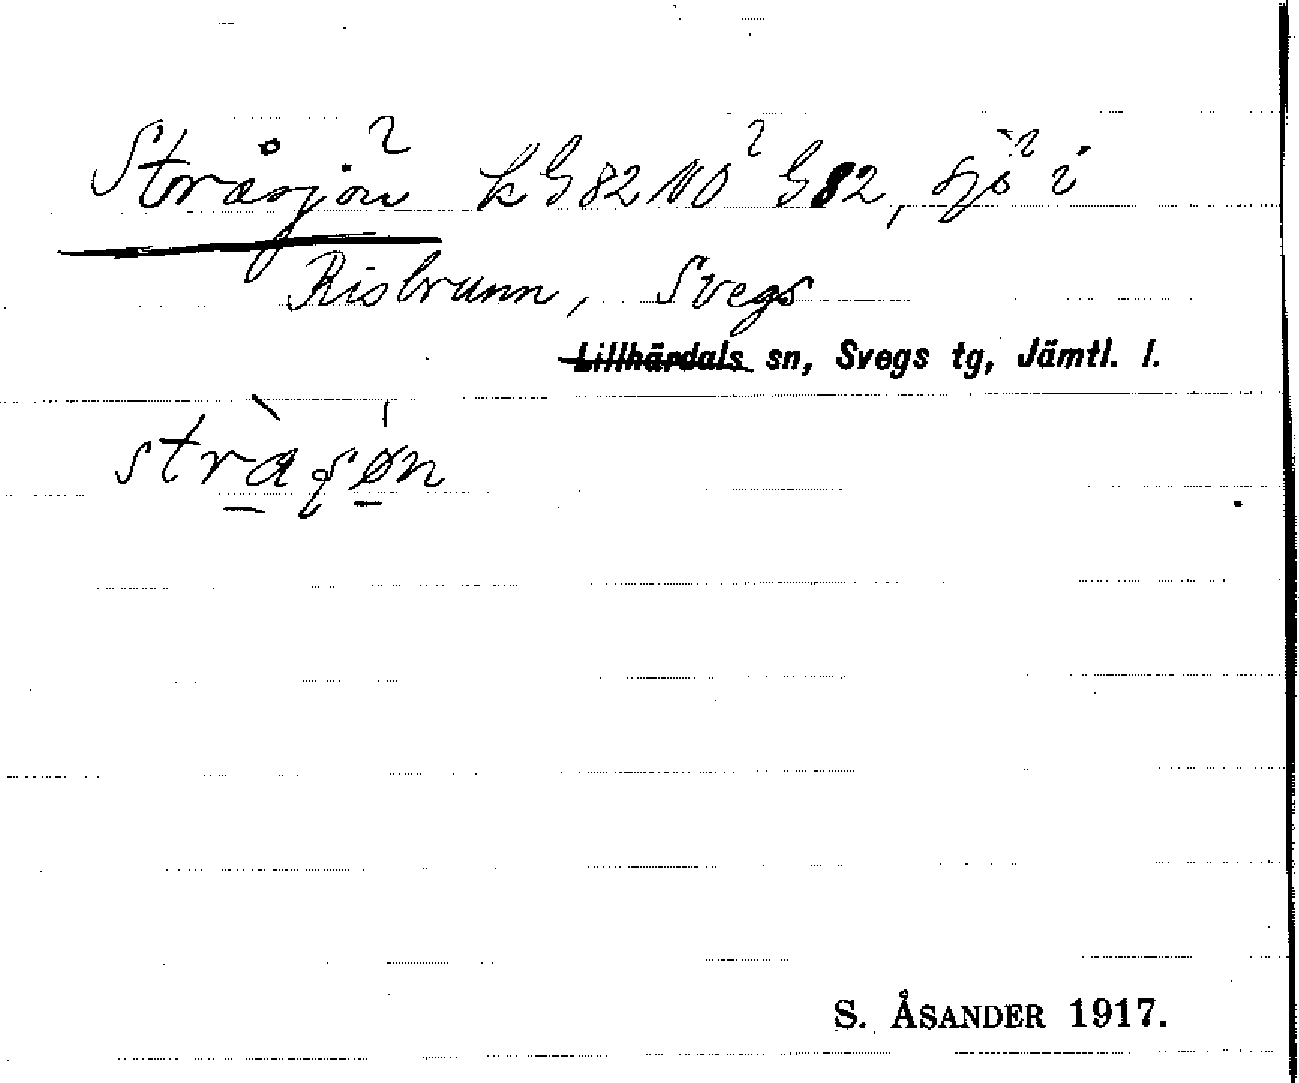 Stråsjön k G 82 NO G 82, sjö i
Risbrunn, Svegs
Lillhärdals sn, Svegs tg, Jämtl. l.
S. ÅSANDER 1917.